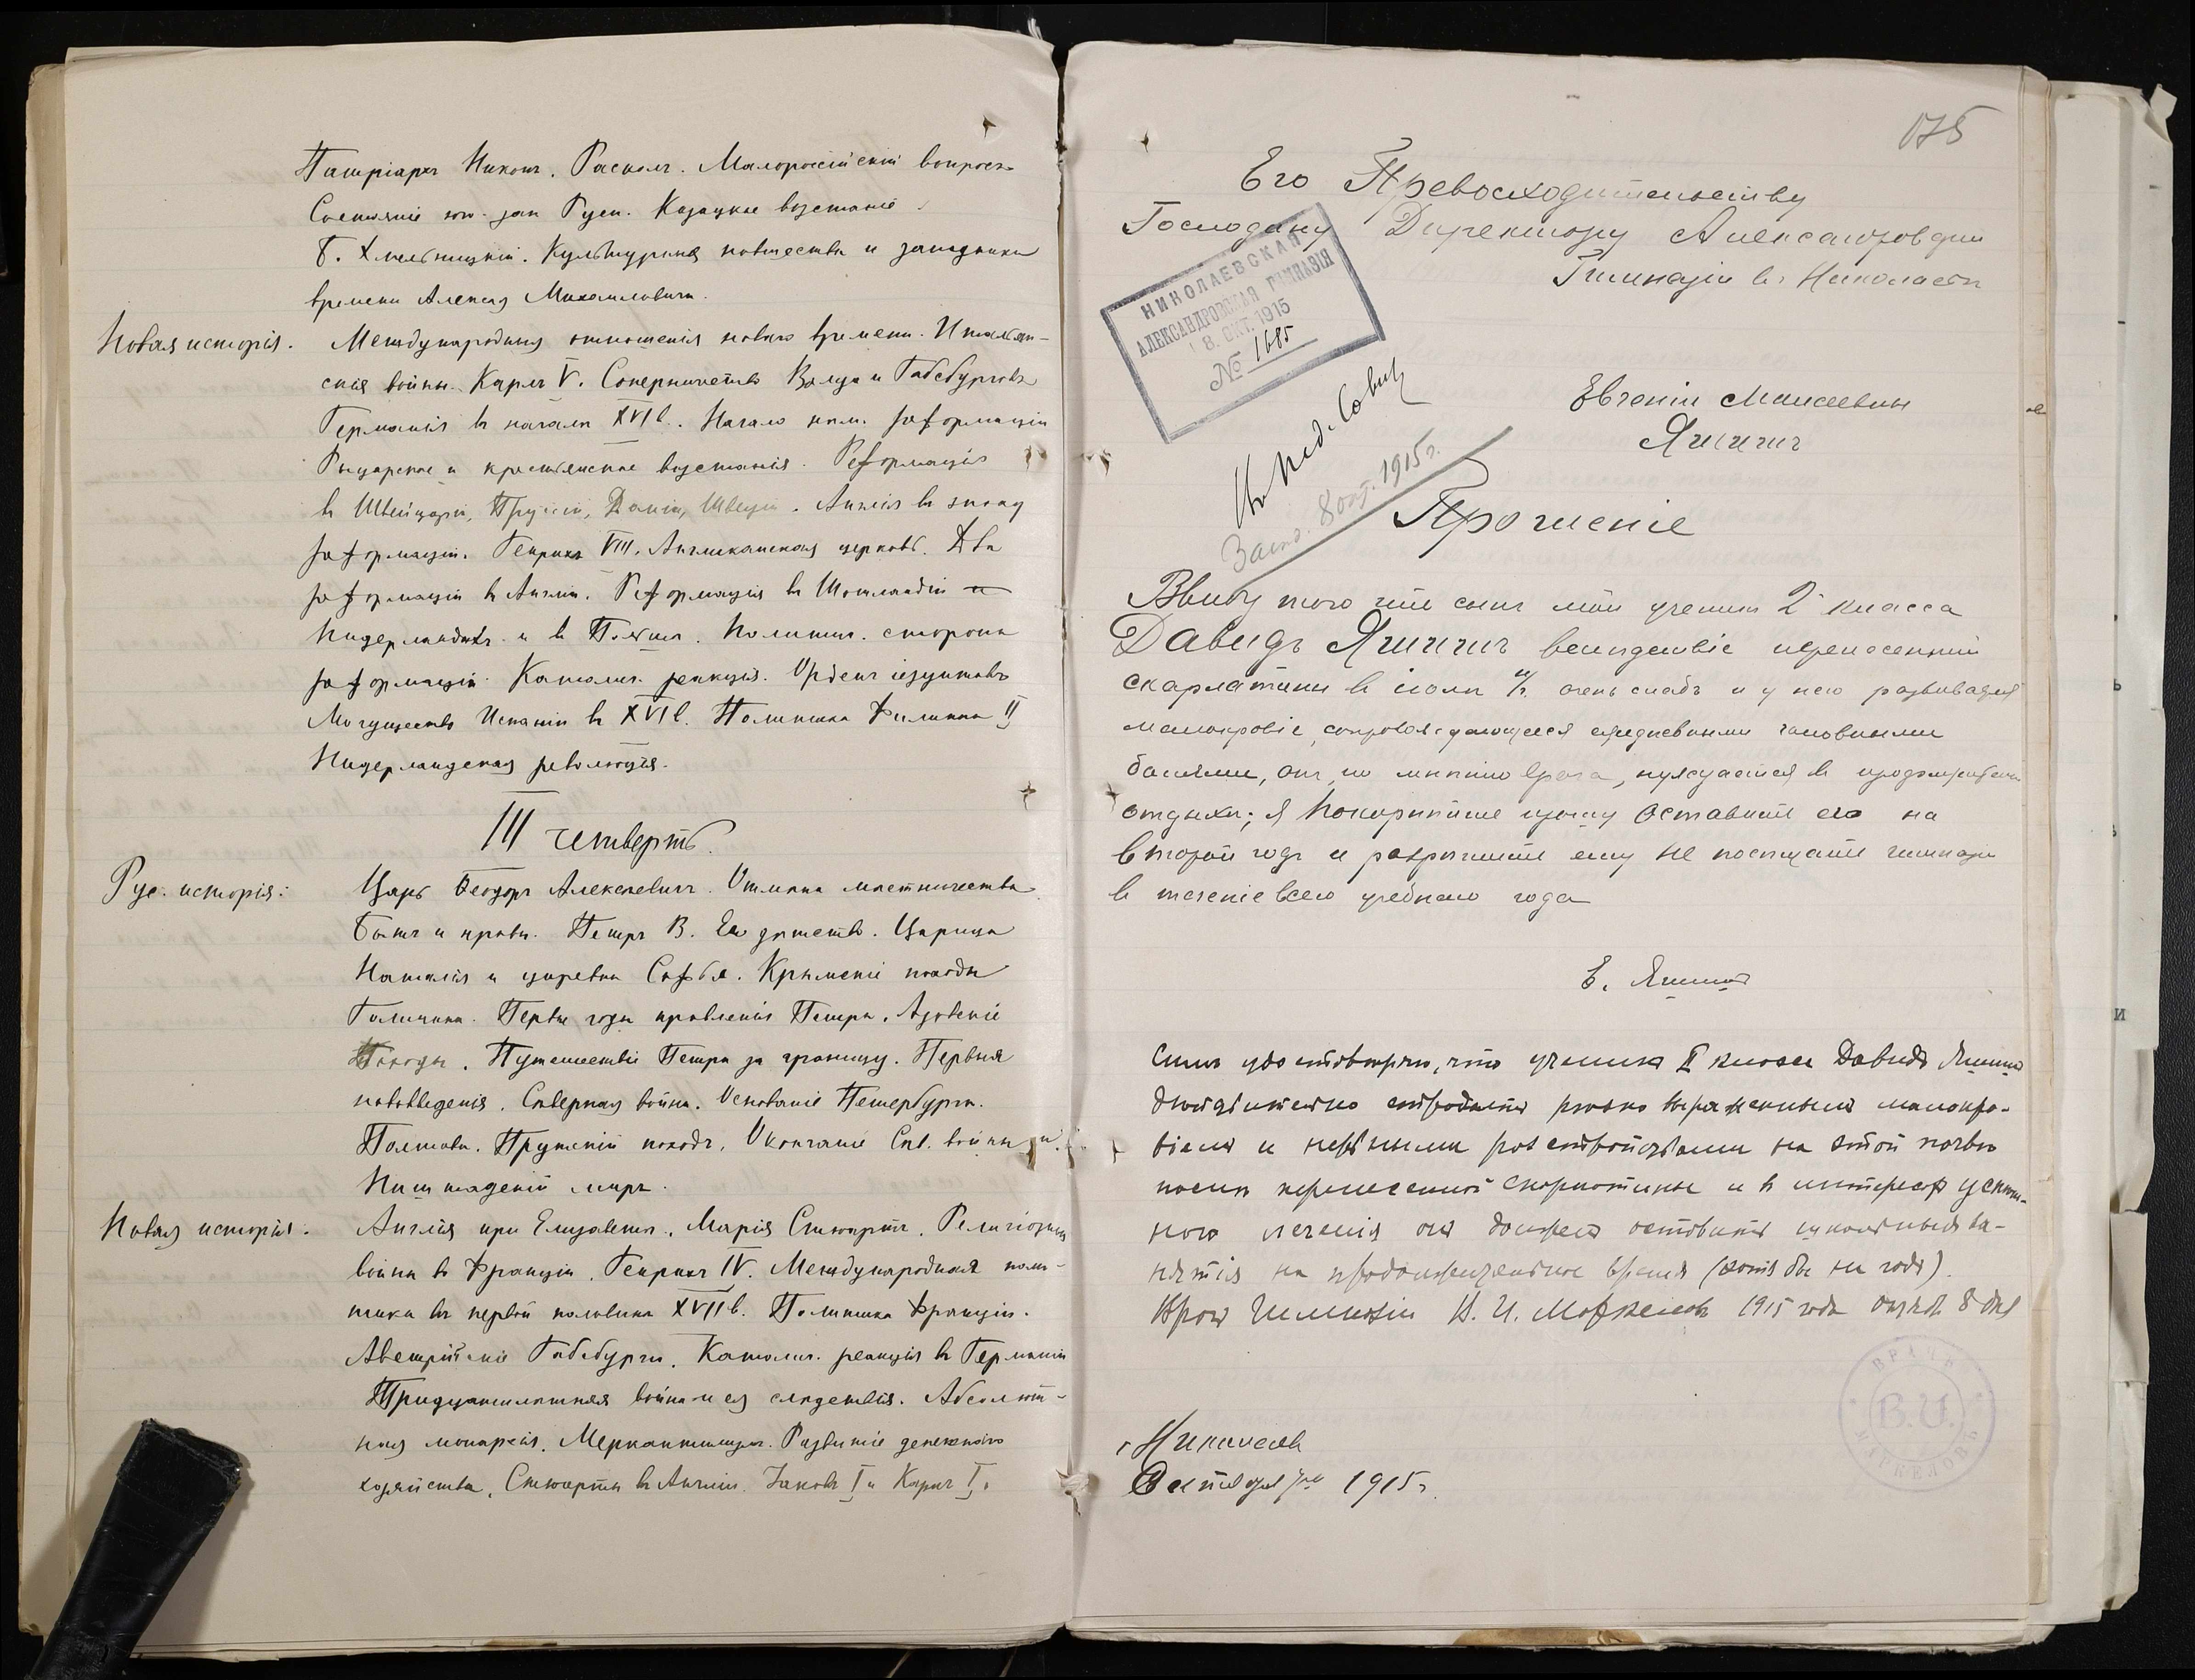 Патріархъ Никонъ. Расколъ. Малороссійскій вопросъ
Состояніе юго-зап Руси. Казацкое возстаніе.
Б. Хмельницкій. Культурныя новшества и западники
времени Алексѣя Михайловича.
Новая исторія. Международныя отношенія новаго времени. Итальян-
скія войны. Карлъ V. Соперничество Валуа и Габсбурговъ
Германія въ началѣ XVI в. Начало нѣм. реформаціи
Рыцарское и крестьянское возстанія. Реформація
въ Швейцаріи, Пруссіи, Даніи, Швеціи. Англія въ эпоху
реформаціи. Генрихъ VIII. Англиканская церковь. Двѣ
реформаціи въ Англіи. Реформація въ Шотландіи и
Нидерландахъ и въ Польшѣ. Политич. сторона
реформаціи. Католич. реакція. Орденъ іезуитовъ
Могущество Испаніи въ XVI в. Политика Филиппа II
Нидерландская революція.
III четверть.
Рус. исторія: Царь Ѳеодоръ Алексѣевичъ. Отмѣна мѣстничества.
Бытъ и нравы. Петръ В. Его дѣтство. Царица
Наталія и царевна Софья. Крымскіе походы
Голицына. Первые годы правленія Петра. Азовскіе
Походы. Путешествіе Петра за границу. Первыя
нововведенія. Сѣверная война. Основаніе Петербурга.
Полтава. Прутскій походъ. Окончаніе Сѣв. войны и
Ништадскій миръ.
Новая исторія. Англія при Елизаветѣ. Марія Стюартъ. Религіозныя
войны во Франціи. Генрихъ IV. Международная поли-
тика въ первой половинѣ XVII в. Политика Франціи.
Австрійскіе Габсбурги. Католич. реакція въ Германіи
Тридцатилѣтняя война и ея слѣдствія. Абсолют-
ная монархія. Меркантилизмъ. Развитіе денежнаго
хозяйства. Стюарты въ Англіи. Іаковъ I и Карлъ I.
175
Его Превосходительству
Господину Директору Александровской
Гимназіи въ Николаевѣ
НИКОЛАЕВСКАЯ
АЛЕКСАНДРОВСКАЯ ГИМНАЗІЯ
8. ОКТ. 1915
№ 1685
Въ пед. Совѣтъ
8 окт. 1915 г.
Евгеніи Моисеевны
Прошеніе
Ввиду того что сынъ мой ученикъ 2 класса
Давидъ вслѣдствіе перенесенной
скарлатины въ іюлѣ очень слабъ и у него развивается
малокровіе, сопровождающееся ежедневными головными
болями, онъ, по мнѣнію врача, нуждается въ продолжительн
отдыхѣ; я покорнѣйше прошу оставить его на
второй годъ и разрѣшить ему не посѣщать гимназіи
въ теченіе всего учебнаго года
Симъ удостовѣряю, что ученикъ II класса Давидъ
дѣйствительно страдаетъ рѣзко выраженнымъ малокро-
віемъ и нервными разстройствами на этой почвѣ
послѣ перенесенной скарлатины и въ интересѣ успѣш-
наго леченія онъ долженъ оставить школьныя за-
нятія на продолжительное время (хотя бы на годъ).
Врачъ Гимназіи В. И. Маркеловъ 1915 года октяб. 8 дня
ВРАЧЪ
В.И.
МАРКЕЛОВЪ
г Николаевъ
Октября 7го 1915 г.